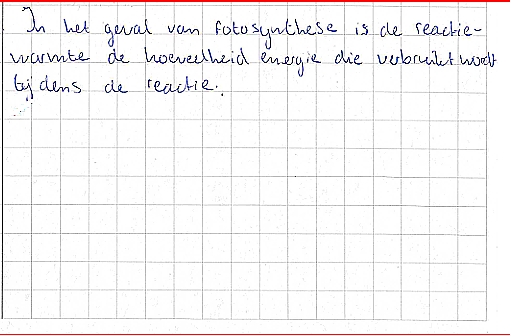 In het geval van fotosynthese is de reactie-
warmte de hoeveelheid energie die verbruikt wordt
tijdens de reactie.